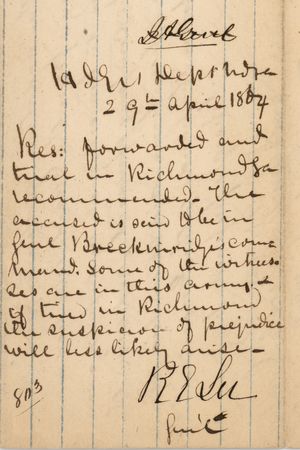 Hd Qrs Dept N Va
29th April 1864
Res: forwarded and
trial in Richmond Va
recommended. The
accused is said to be in
Genl Breckinridge's com-
mand. Some of the witnes-
ses are in this army &
if tried in Richmond
the suspicion of prejudice
will less likely arise—
R E Lee
Gen'l
803